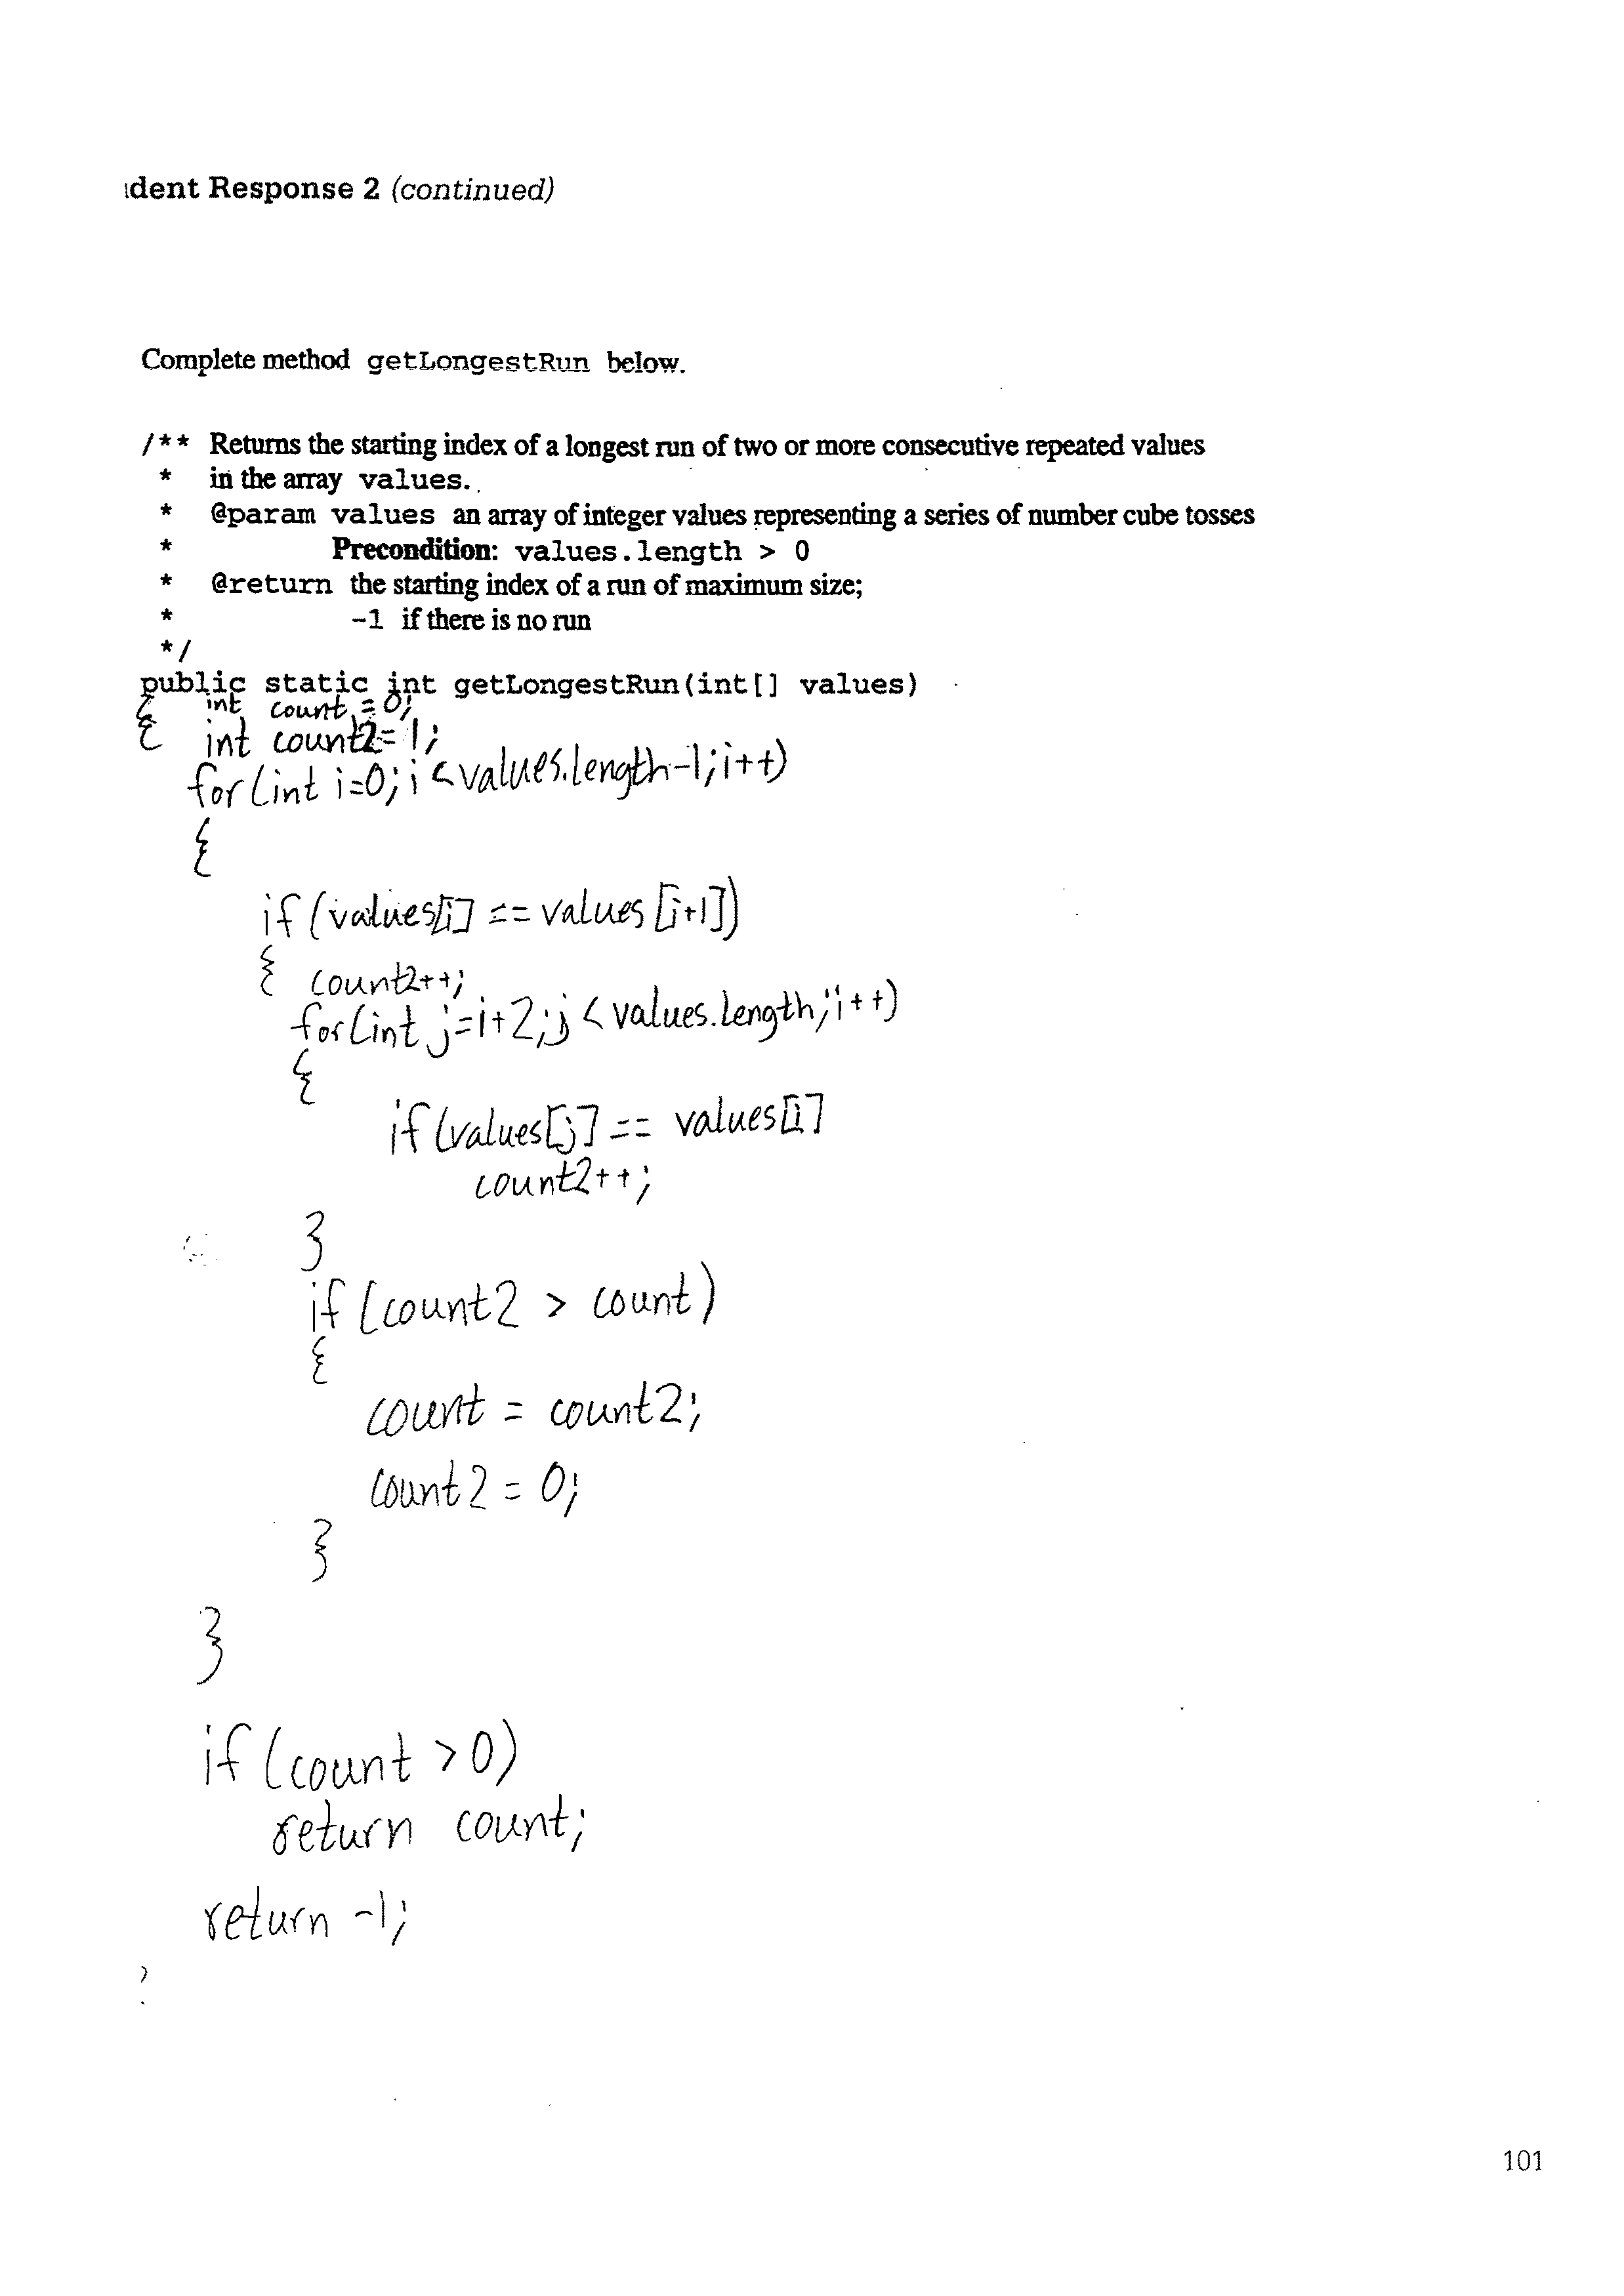 dent Response 2 (continued)
Complete method getLongestRun below.
/** Returns the starting index of a longest run of two or more consecutive repeated values
* in the array values.
* @param values an array of integer values representing a series of number cube tosses
* Precondition: values.length > 0
* @return the starting index of a run of maximum size;
* -1 if there is no run
*/
public static int getLongestRun(int[] values)
{ int count = 0;
{ int count2 = 1;
for (int i=0; i < values.length-1; i++)
{
if (values[i] == values [i+1])
{ count2++;
for (int j=i+2; j < values.length; i++)
{
if (values[j] == values[i]
count2++;
}
if (count2 > count)
{
count = count2;
count2 = 0;
}
}
if (count > 0)
return count;
return -1;
101